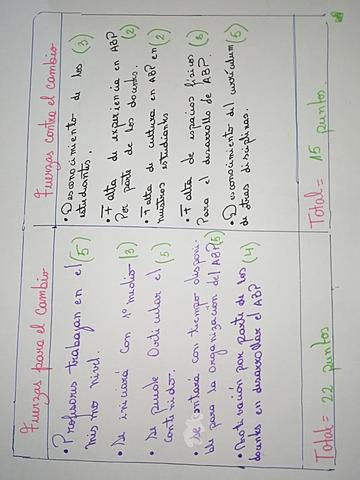 Fuerzas para el cambio
• Profesores trabajan en el (5)
mismo nivel.
• Se iniciará con 1º medio (3)
• Se puede Articular el (5)
contenido.
• Se contará con tiempo disponi-
ble para la organización del ABP (5)
• Motivación por parte de los (4)
docentes en desarrollar el ABP
Total = 22 puntos
Fuerzas contra el cambio
• Desconocimiento de los (3)
estudiantes.
• Falta de experiencia en ABP
Por parte de los docents. (2)
• Falta de cultura en ABP en (2)
nuestros estudiantes
• Falta de espacios físicos (3)
Para el desarrollo de ABP.
• Desconocimiento del currículum (5)
de otras disciplinas.
Total = 15 puntos.